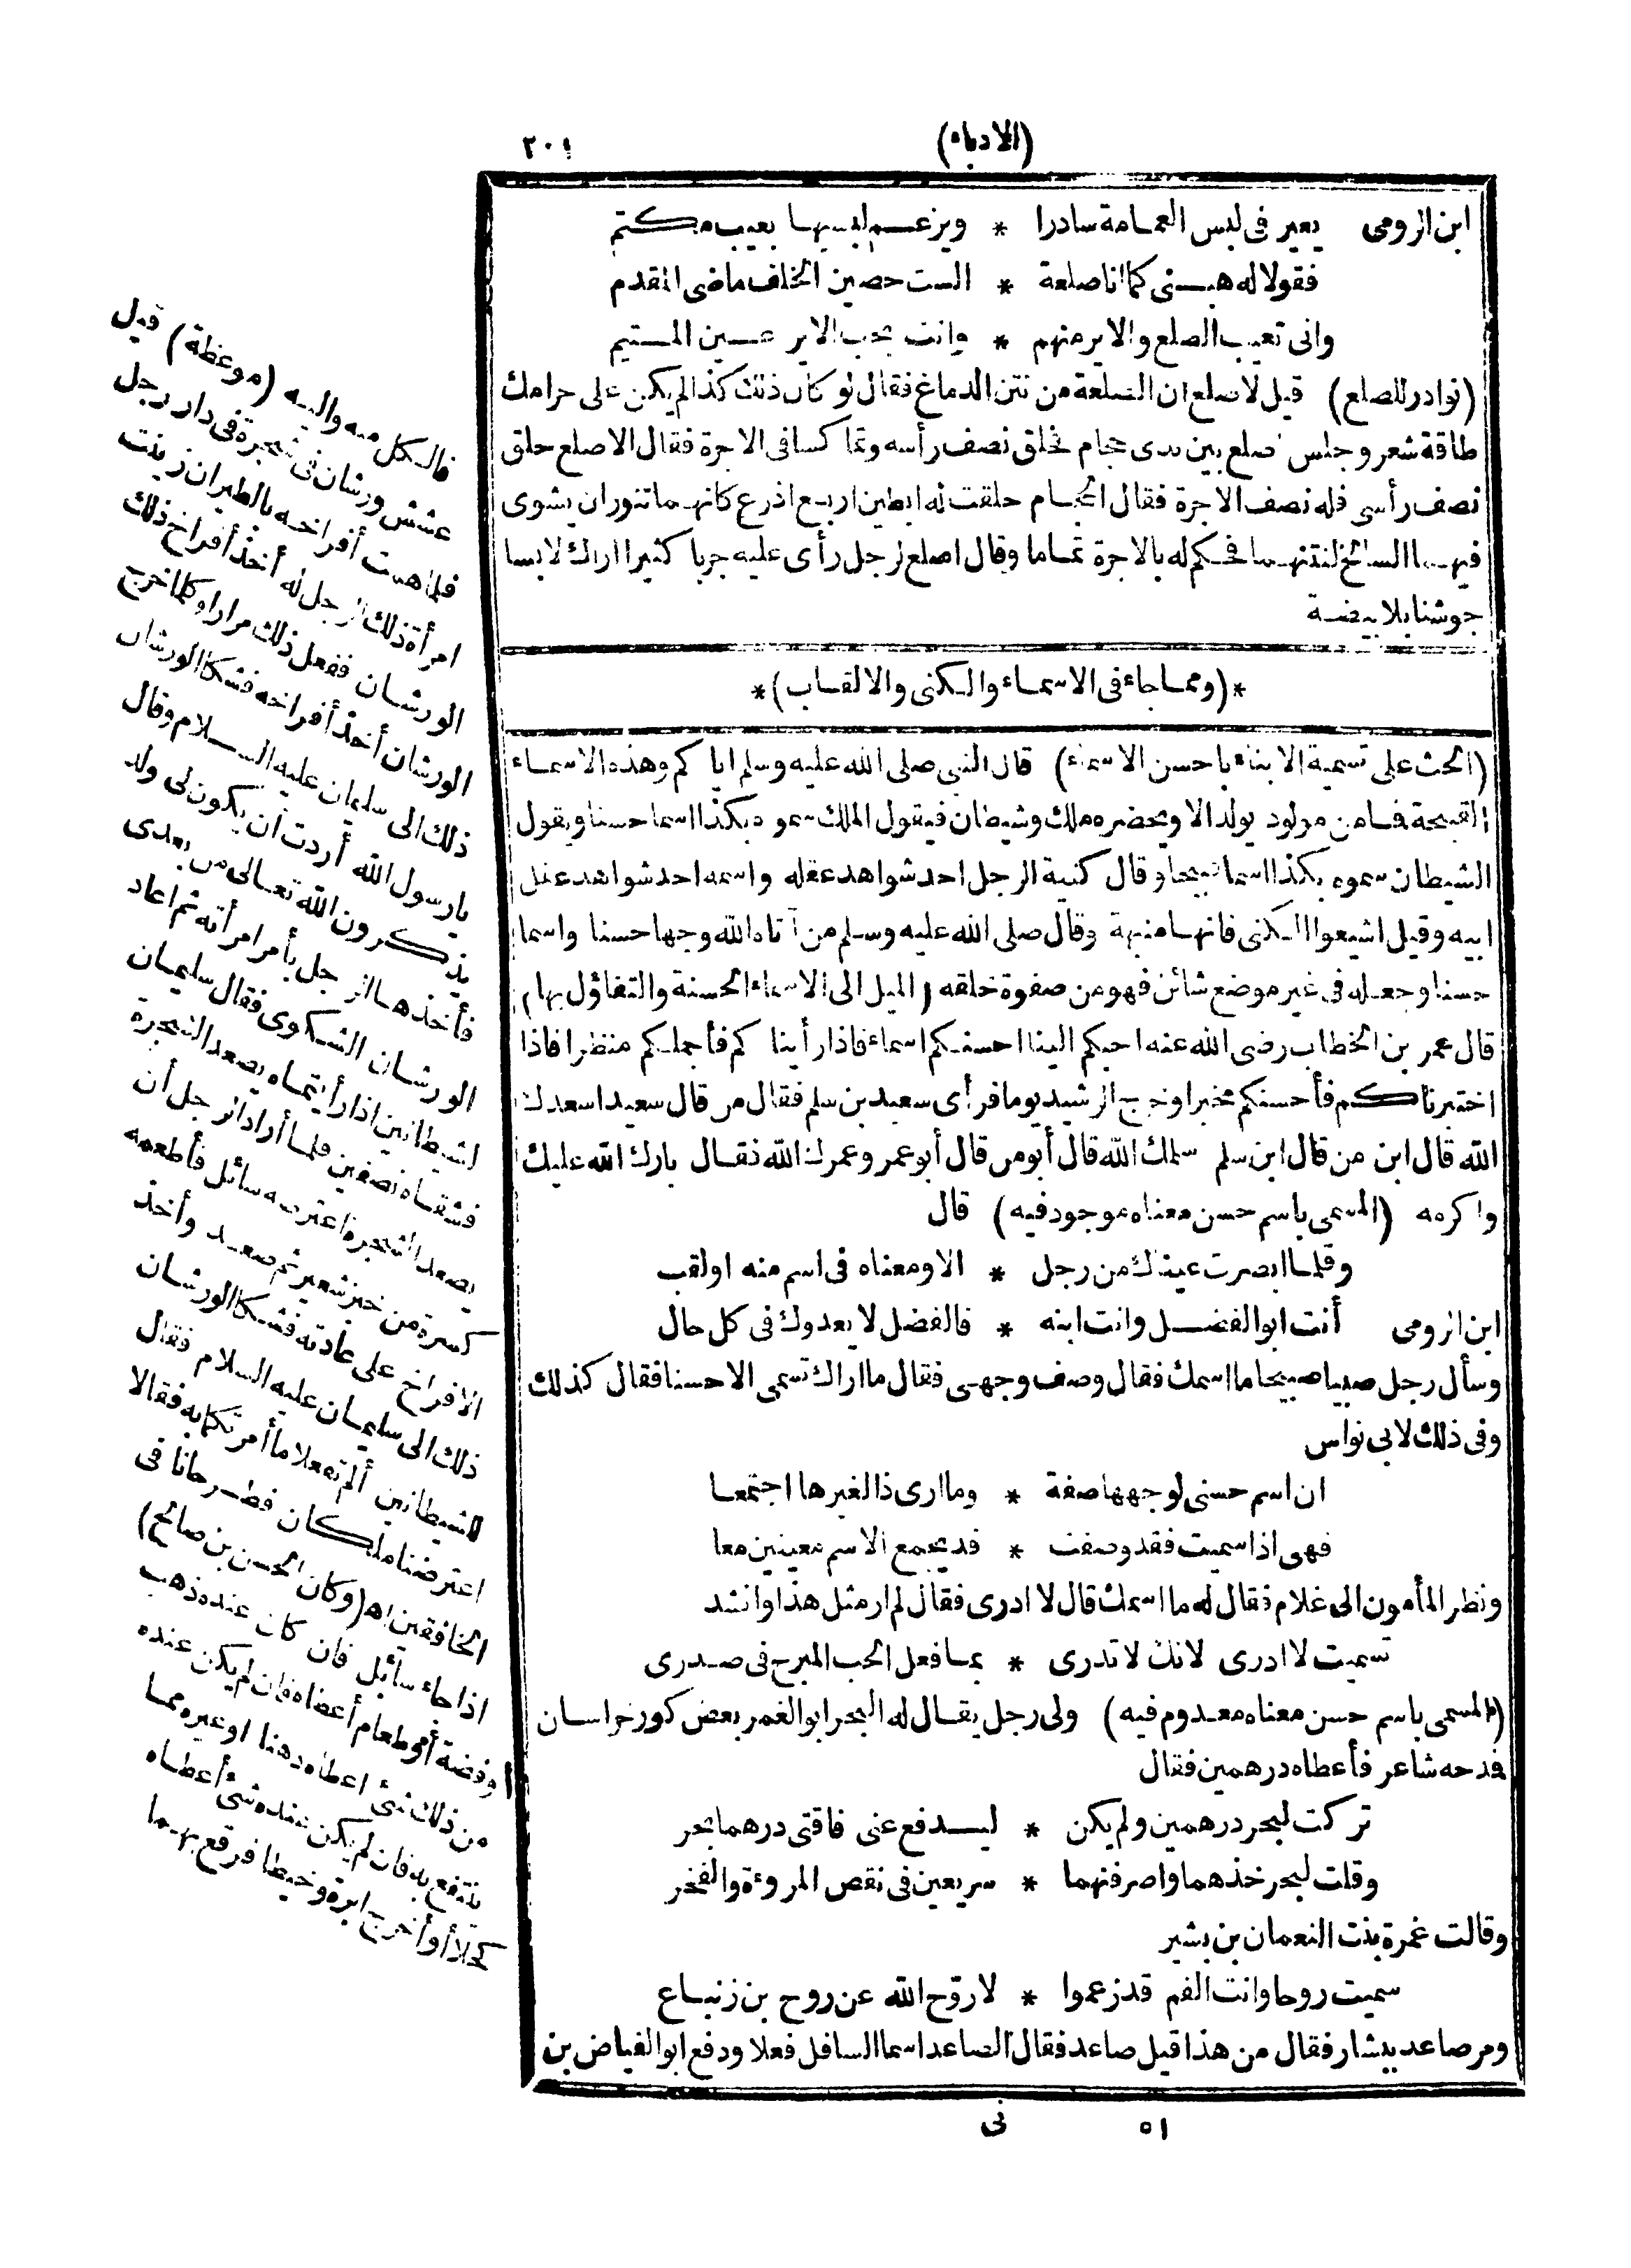 (الادباء)
٢٠١
ابن الرومى يعير فى لبس العمامة سادرا * ويزعم لبسيها بعيب مكتم
فقولا له هبنى كما انا صلعة * الست حصين الخلف ماضى المقدم
وانى تعيب الصلع والاير منهم * وانت تحب الاير عين المستيم
(نوادر للصلع) قيل لاصلع ان الصلعة من نتن الدماغ فقال لو كان ذلك كذا لم يكن على حرامك
طاقة شعر وجلس اصلع بين يدى حجام فحلق نصف رأسه وتماكسا فى الاجرة فقال الاصلع حلق
نصف رأسى فله نصف الاجرة فقال الحجام حلقت له ابطين اربع اذرع كانهما تنوران يشوى
فيهما السالخ لنتنهما فحكم له بالاجرة تماما وقال اصلع لرجل رأى عليه جربا كثيرا اراك لابسا
جوشنا بلا بيضة
*(ومما جاء فى الاسماء والكنى والالقاب)*
(الحث على تسمية الابناء باحسن الاسماء) قال النبى صلى الله عليه وسلم ايا كم وهذه الاسماء
القبيحة فما من مولود يولد الا ويحضره ملك وشيطان فيقول الملك سموه بكذا اسما حسنا ويقول
الشيطان سموه بكذا اسما قبيحا وقال كنية الرجل احد شواهد عقله واسمه احد شواهد عقل
ابيه وقيل اشيعوا الكنى فانها منبهة وقال صلى الله عليه وسلم من آتاه الله وجها حسنا واسما
حسنا وجعله فى غير موضع شائن فهو من صفوة خلقه (الميل الى الاسماء الحسنة والتفاؤل بها)
قال عمر بن الخطاب رضى الله عنه احبكم الينا احسنكم اسماء فاذا رأينا كم فأجملكم منظرا فاذا
اختبرناكم فأحسنكم مخبرا وخرج الرشيد يوما فرأى سعيد بن سلم فقال من قال سعيد اسعدك
الله قال ابن من قال ابن سلم سلمك الله قال أبو من قال أبو عمر وعمرك الله فقال بارك الله عليك
واكرمه (المسمى باسم حسن معناه موجود فيه) قال
وقلما ابصرت عيناك من رجل * الا ومعناه فى اسم منه او لقب
ابن الرومى أنت ابو الفضل وانت ابنه * فالفضل لا يعدوك فى كل حال
وسأل رجل صبيا صبيحا ما اسمك فقال وصف وجهى فقال ما اراك تسمى الا حسنا فقال كذلك
وفى ذلك لابى نواس
ان اسم حسنى لوجهها صفة * وما ارى ذا لغيرها اجتمعا
فهى اذا سميت فقد وصفت * قد يجمع الاسم معنيين معا
ونظر المأمون الى غلام فقال له ما اسمك قال لا ادرى فقال لم ار مثل هذا وانشد
تسميت لا ادرى لانك لا تدرى * بما فعل الحب المبرح فى صدرى
(المسمى باسم حسن معناه معدوم فيه) ولى رجل يقال له البحر ابو الغمر بعض كور خراسان
فمدحه شاعر فأعطاه درهمين فقال
تركت لبحر درهمين ولم يكن * ليدفع عنى فاقتى درهما بحر
وقلت لبحر خذهما واصرفنهما * سريعين فى نقص المروءة والفخر
وقالت عمرة بنت النعمان بن بشير
سميت روحا وانت الغم قد زعموا * لا روّح الله عن روح بن زنباع
ومر صاعد ببشار فقال من هذا قيل صاعد فقال الصاعد اسما السافل فعلا ودفع ابو الفياض بن
٥١ نى
فالكل منه واليه (موعظة) قيل
عشش ورشان فى شجرة فى دار رجل
فلما همت أفراخه بالطيران زينت
امرأة ذلك الرجل له أخذ أفراخ ذلك
الورشان ففعل ذلك مرارا وكلما اخرج
الورشان أخذ أفراخه فشكا الورشان
ذلك الى سليمان عليه السلام وقال
يا رسول الله أردت ان يكون لى ولد
يذكرون الله تعالى من بعدى
فأخذها الرجل بأمر امرأته ثم اعاد
الورشان الشكوى فقال سليمان
لشيطانين اذا رأيتماه يصعد الشجرة
فشقاه نصفين فلما أراد الرجل أن
يصعد الشجرة اعترضه سائل فأطعمه
كسرة من خبز شعير ثم صعد وأخذ
الافراخ على عادته فشكا الورشان
ذلك الى سليمان عليه السلام فقال
للشيطانين ألم تفعلا ما أمرتكما به فقالا
اعترضنا ملكان فطرحانا فى
الخافقين اه (وكان الحسن بن صالح)
اذا جاء سائل فان كان عنده ذهب
او فضة أو طعام أعطاه فان لم يكن عنده
من ذلك شئ اعطاه دهنا او غيره مما
ينتفع به فان لم يكن عنده شئ أعطاه
كحلا أو أخرج ابرة وخيطا فرقع بهما